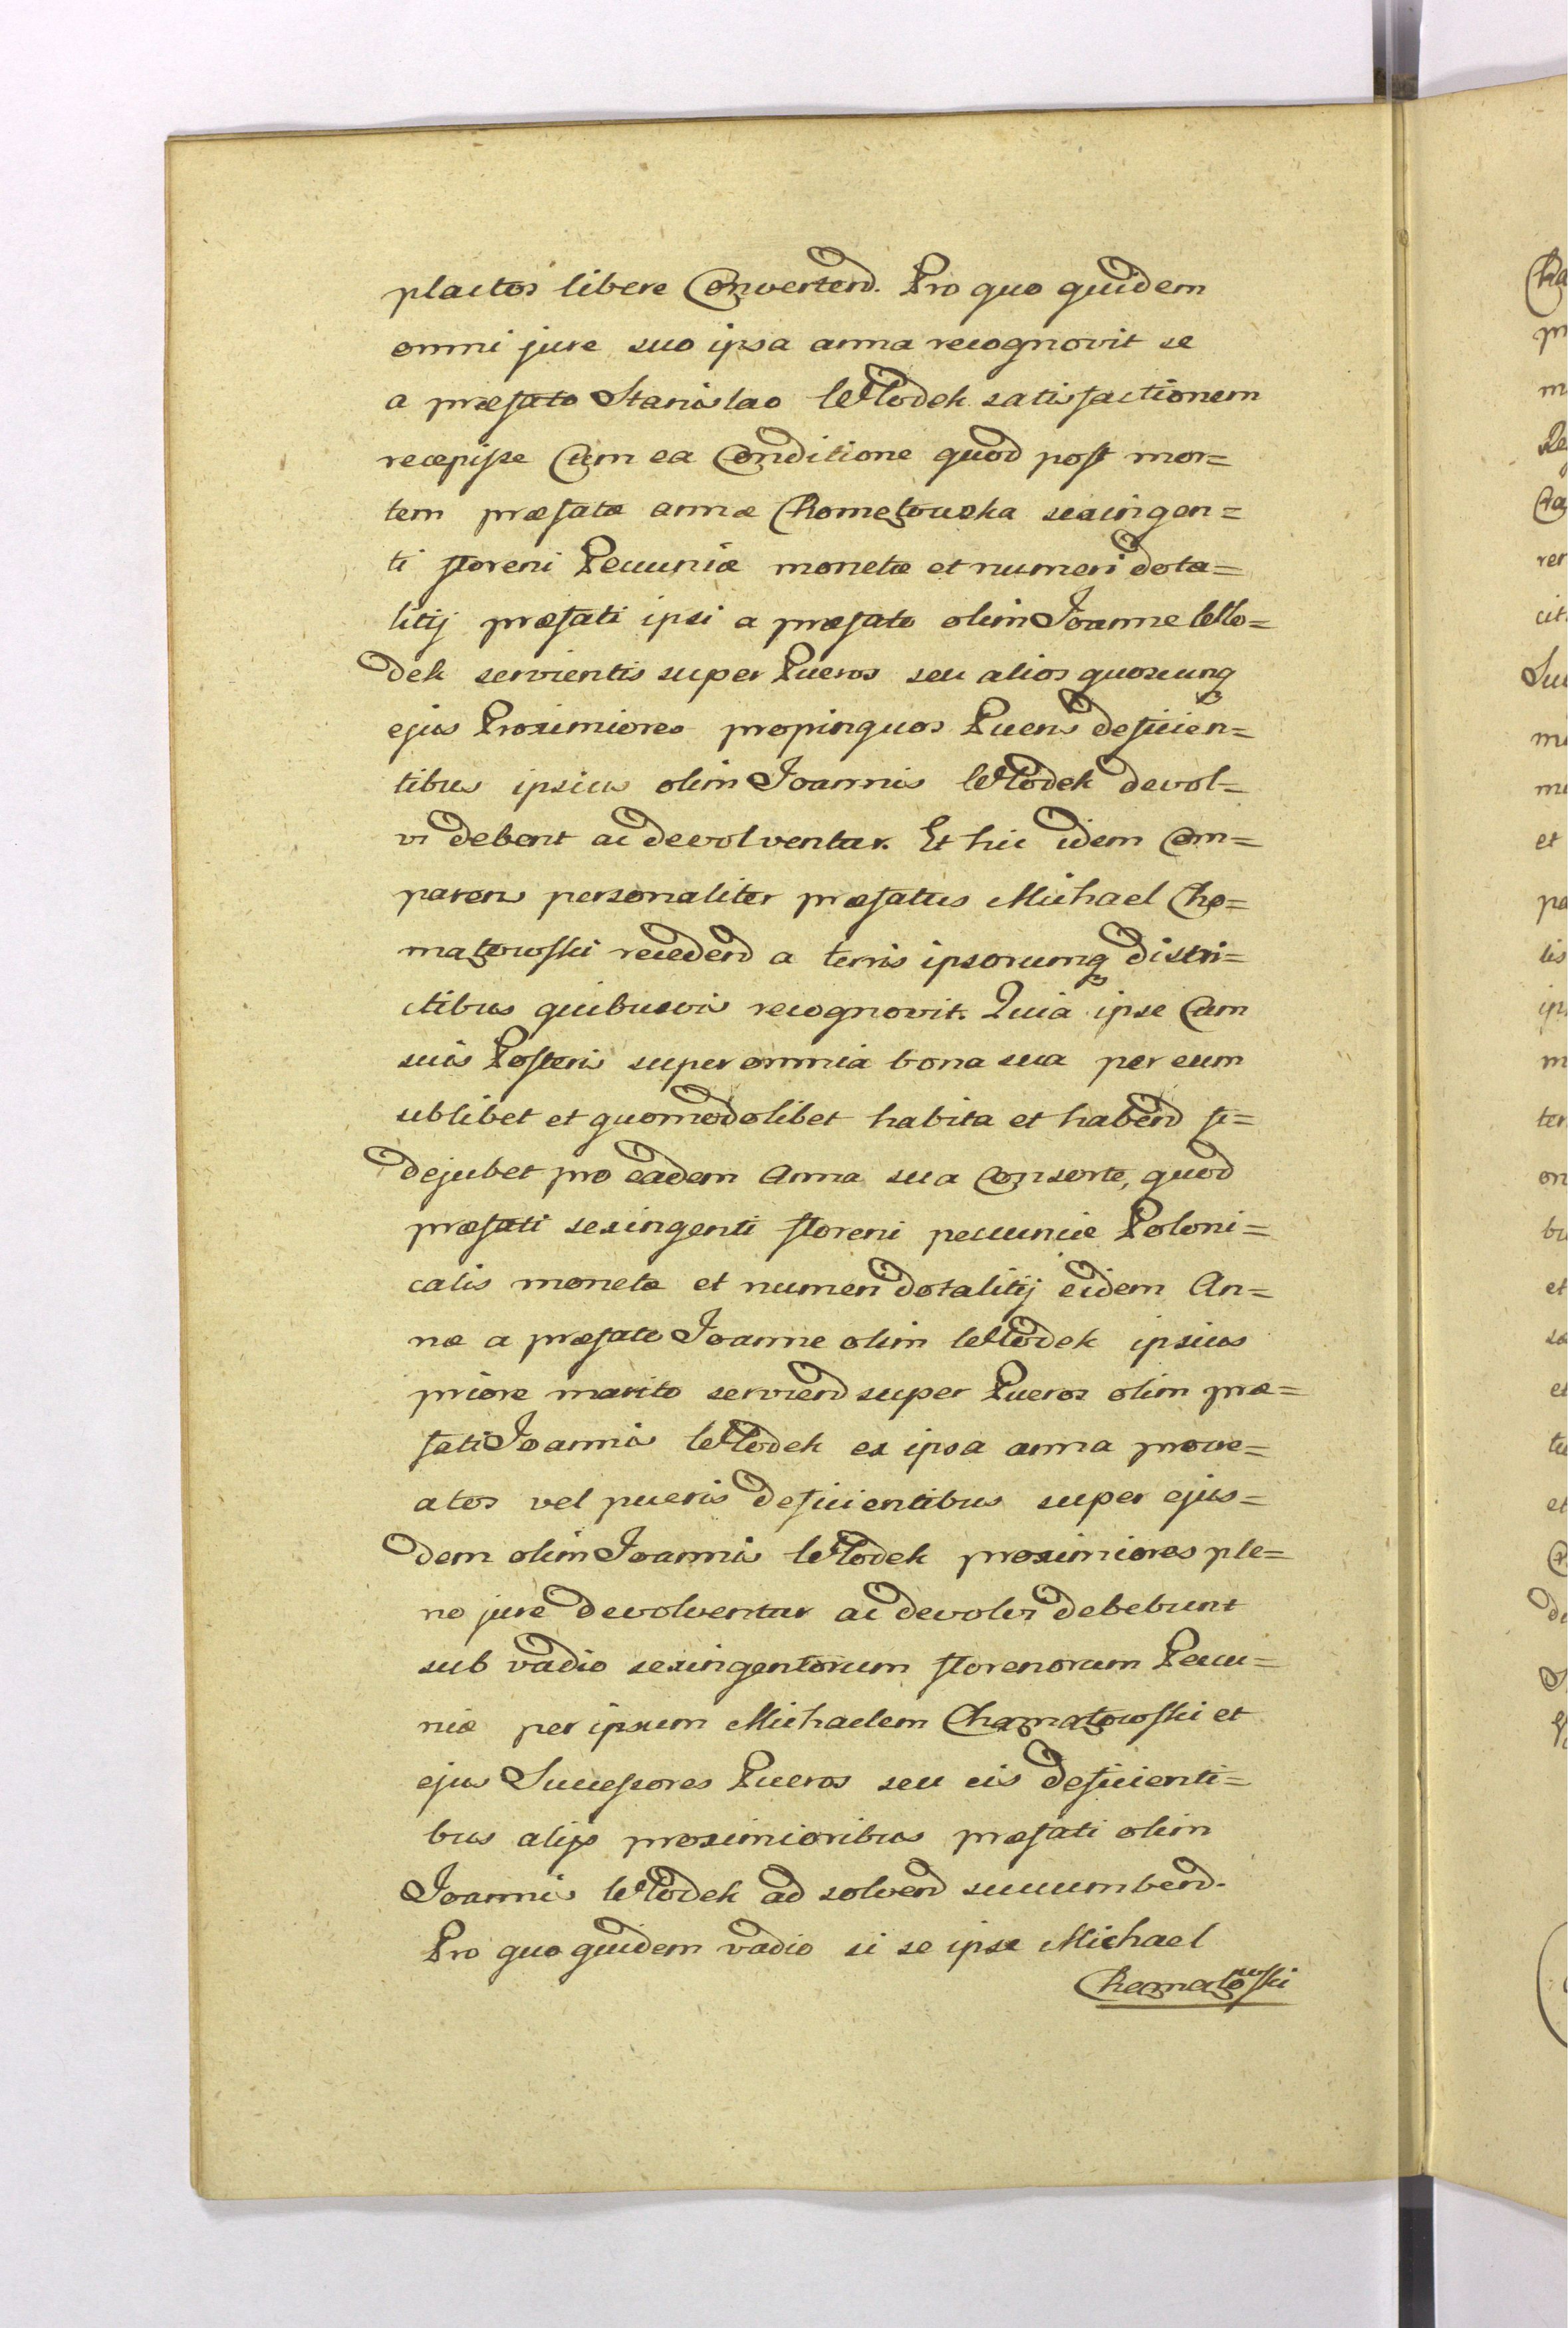 placitos libere Convertend. Pro quo quidem
omni jure suo ipsa anna recognovit se
a præfato Stanislao Włodek satisfactionem
recepisse Cum ea Conditione quod post mor=
tem præfatæ annæ Chomętowska sexingen=
ti floreni Pecuniæ monetæ et numeri dota=
litij præfati ipsi a præfato olim Joanne Wło=
dek servientis super Pueros seu alios quoscunq
ejus Proximiores propinquos Pueris deficien=
tibus ipsius olim Joannis Włodek devol=
vi debent ac devolventur. Et hic idem Com=
parens personaliter præfatus Michael Cho=
matowski recedend a terris ipsorumq distri=
ctibus quibusvis recognovit. Quia ipse Cum
suis Posteris super omnia bona sua per eum
ublibet et quomodolibet habita et habend fi=
dejubet pro eadem Anna sua Consorte, quod
præfati sexingenti floreni pecuniæ Poloni=
calis monetæ et numeri dotalitij eidem An=
næ a præfato Joanne olim Włodek ipsius
priore marito serviend super Pueros olim præ=
fati Joannis Włodek ex ipsa anna procre=
atos vel pueris deficientibus super ejus=
dem olim Joannis Włodek proximiores ple=
no jure devolventur ac devolvi debebunt
sub vadio sexingentorum florenorum Pecu=
niæ per ipsum Michaelem Chamatowski et
ejus Successores Pueros seu eis deficienti=
bus alijs proximioribus præfati olim
Joannis Włodek ad solvend succumbend.
Pro quo quidem vadio si se ipse Michael
Chamatowski